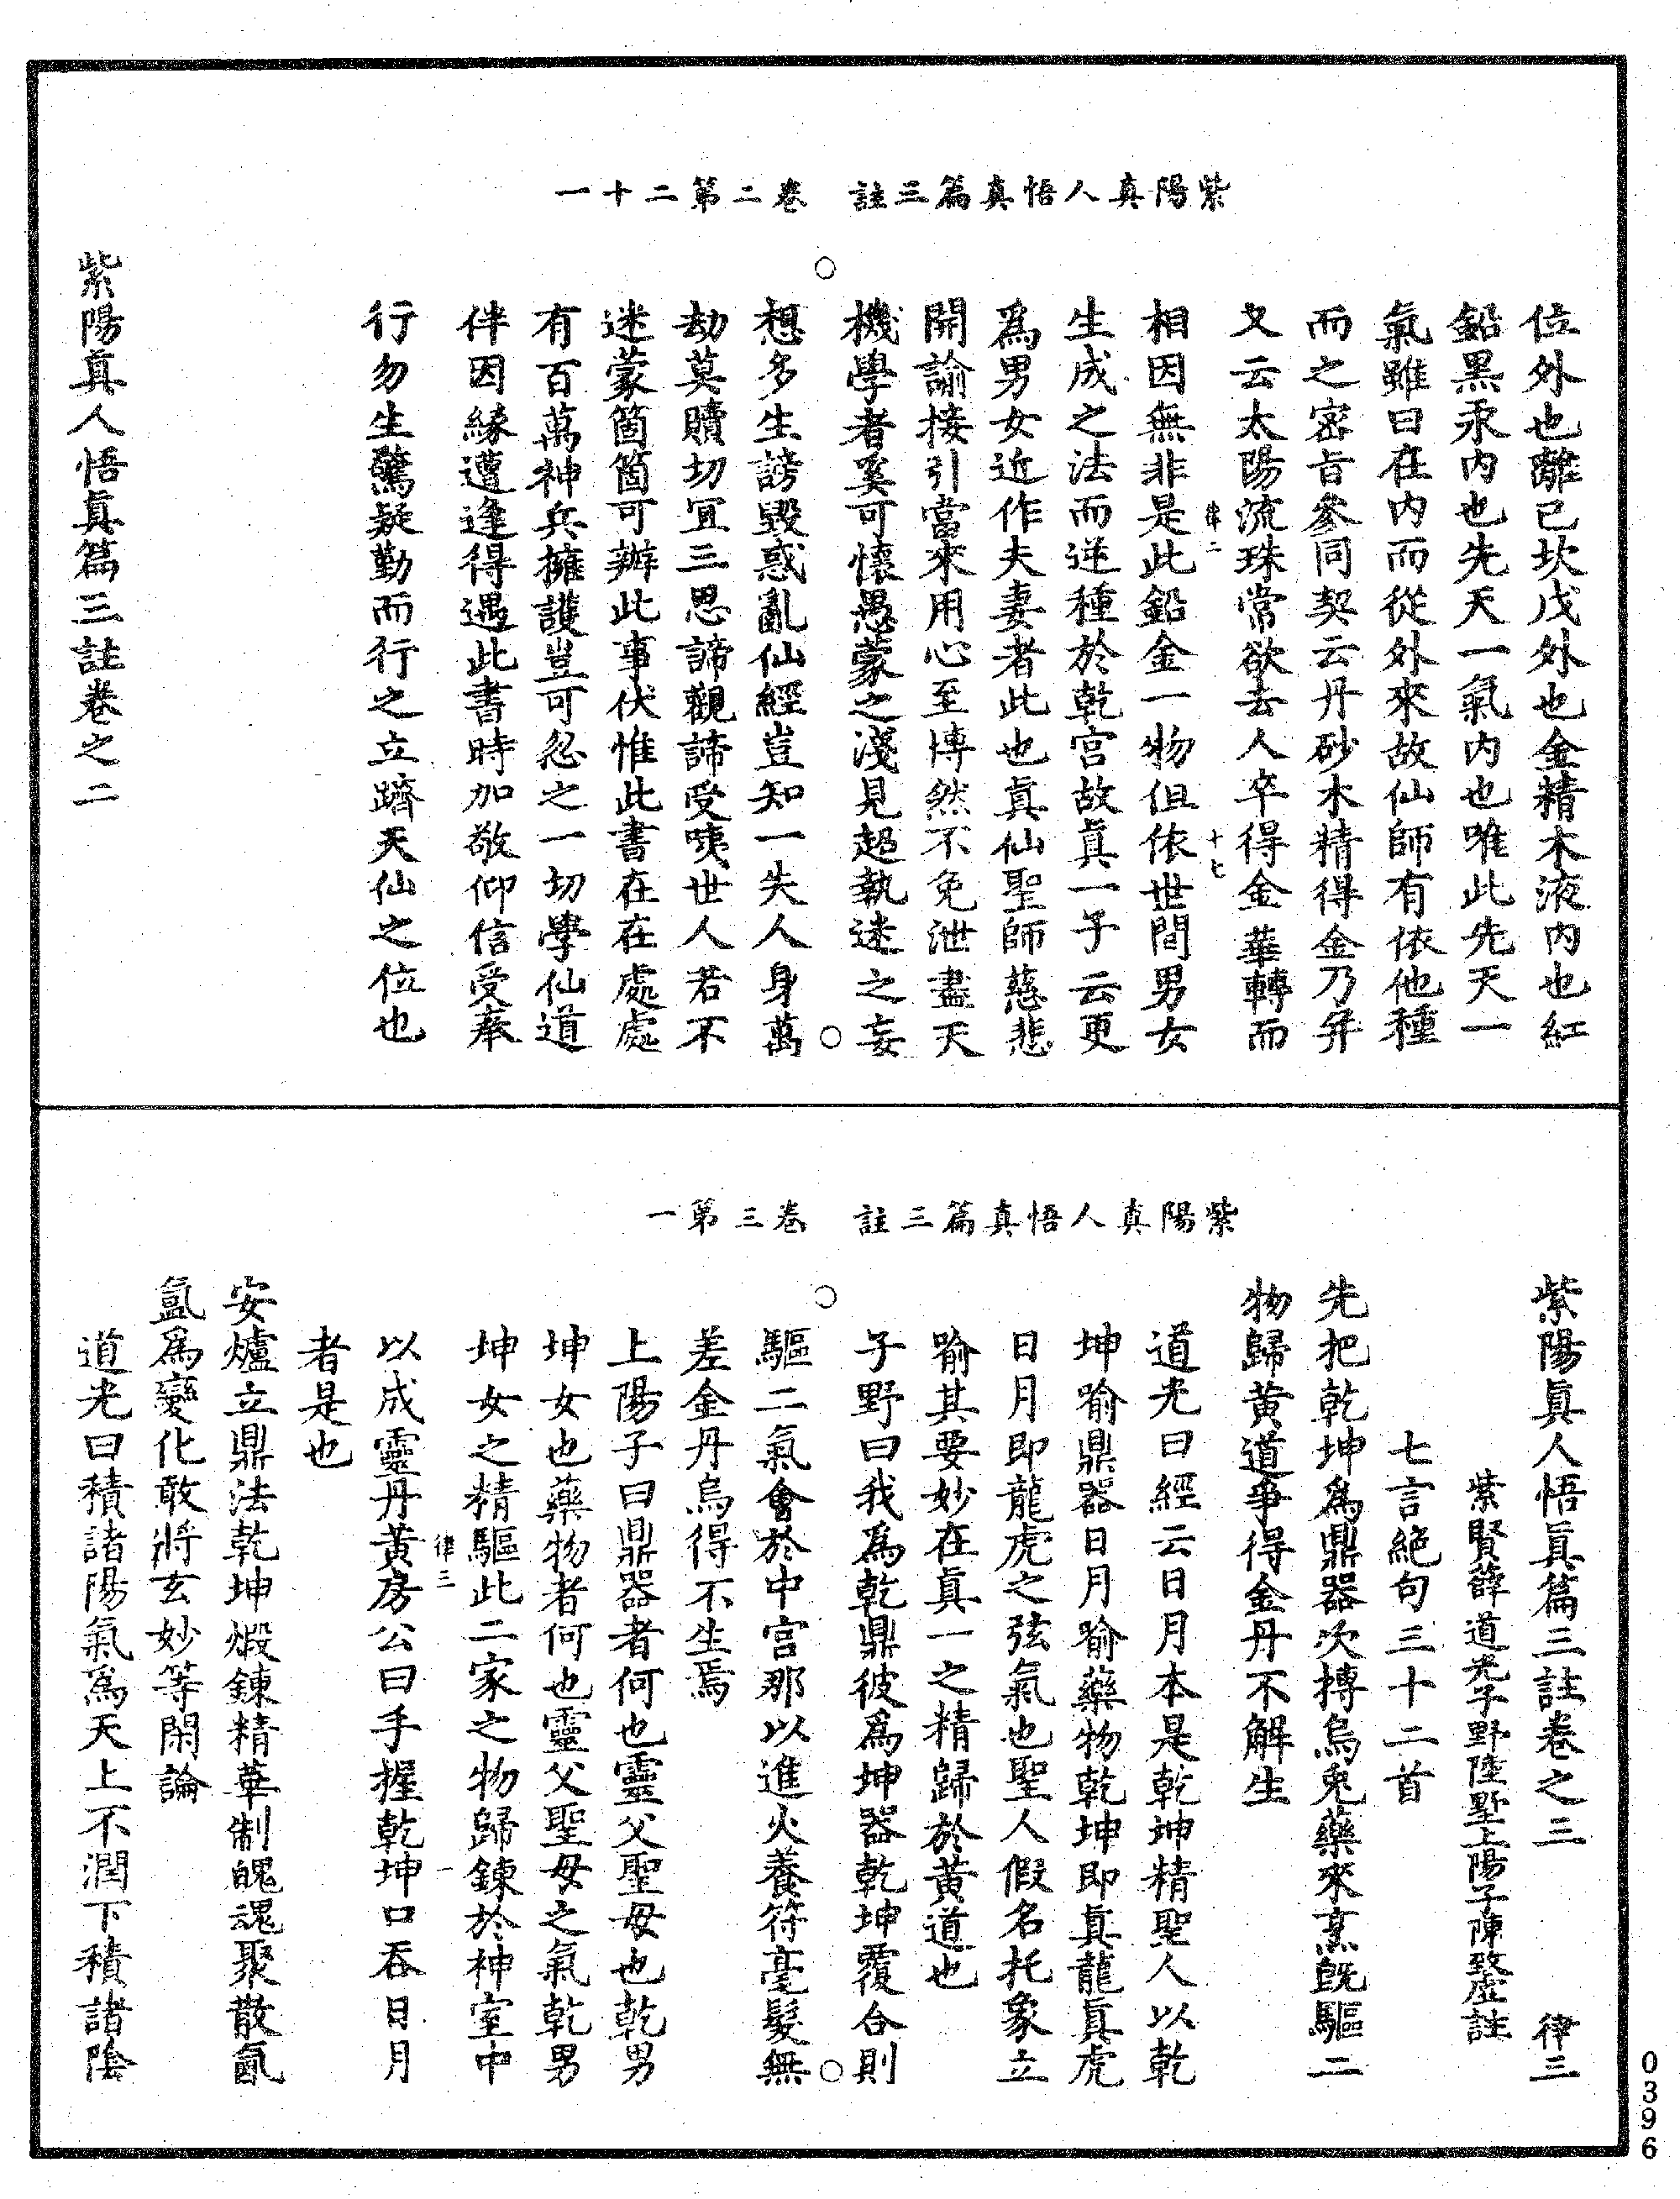 紫陽真人悟真篇三註　卷二第二十一
位外也離己坎戊外也金精木液內也紅
鉛黑汞內也先天一氣內也唯此先天一
氣雖曰在內而從外來故仙師有依他種
而之密旨參同契云丹砂木精得金乃并
又云太陽流珠常欲去人卒得金華轉而
律二　十七
相因無非是此鉛金一物但依世間男女
生成之法而逆種於乾宮故真一子云更
為男女近作夫妻者此也真仙聖師慈悲
開諭接引當來用心至博然不免泄盡天
機學者奚可懷愚蒙之淺見起執迷之妄
想多生謗毀惑亂仙經豈知一失人身萬
劫莫贖切宜三思諦觀諦受咦世人若不
迷蒙箇箇可辦此事伏惟此書在在處處
有百萬神兵擁護豈可忽之一切學仙道
伴因緣遭逢得遇此書時加敬仰信受奉
行勿生驚疑勤而行之立躋天仙之位也
紫陽真人悟真篇三註卷之二
紫陽真人悟真篇三註　卷三第一
紫陽真人悟真篇三註卷之三　律三
紫賢薛道光子野陸墅上陽子陳致虛註
七言絕句三十二首
先把乾坤為鼎器次摶烏兔藥來烹既驅二
物歸黃道爭得金丹不解生
道光曰經云日月本是乾坤精聖人以乾
坤喻鼎器日月喻藥物乾坤即真龍真虎
日月即龍虎之弦氣也聖人假名托象立
喻其要妙在真一之精歸於黃道也
子野曰我為乾鼎彼為坤器乾坤覆合則
驅二氣會於中宮那以進火養符毫髮無
差金丹烏得不生焉
上陽子曰鼎器者何也靈父聖母也乾男
坤女也藥物者何也靈父聖母之氣乾男
坤女之精驅此二家之物歸鍊於神室中
律三　一
以成靈丹黃房公曰手握乾坤口吞日月
者是也
安爐立鼎法乾坤煅鍊精華制魄魂聚散氤
氳為變化敢將玄妙等閑論
道光曰積諸陽氣為天上不潤下積諸陰
0396